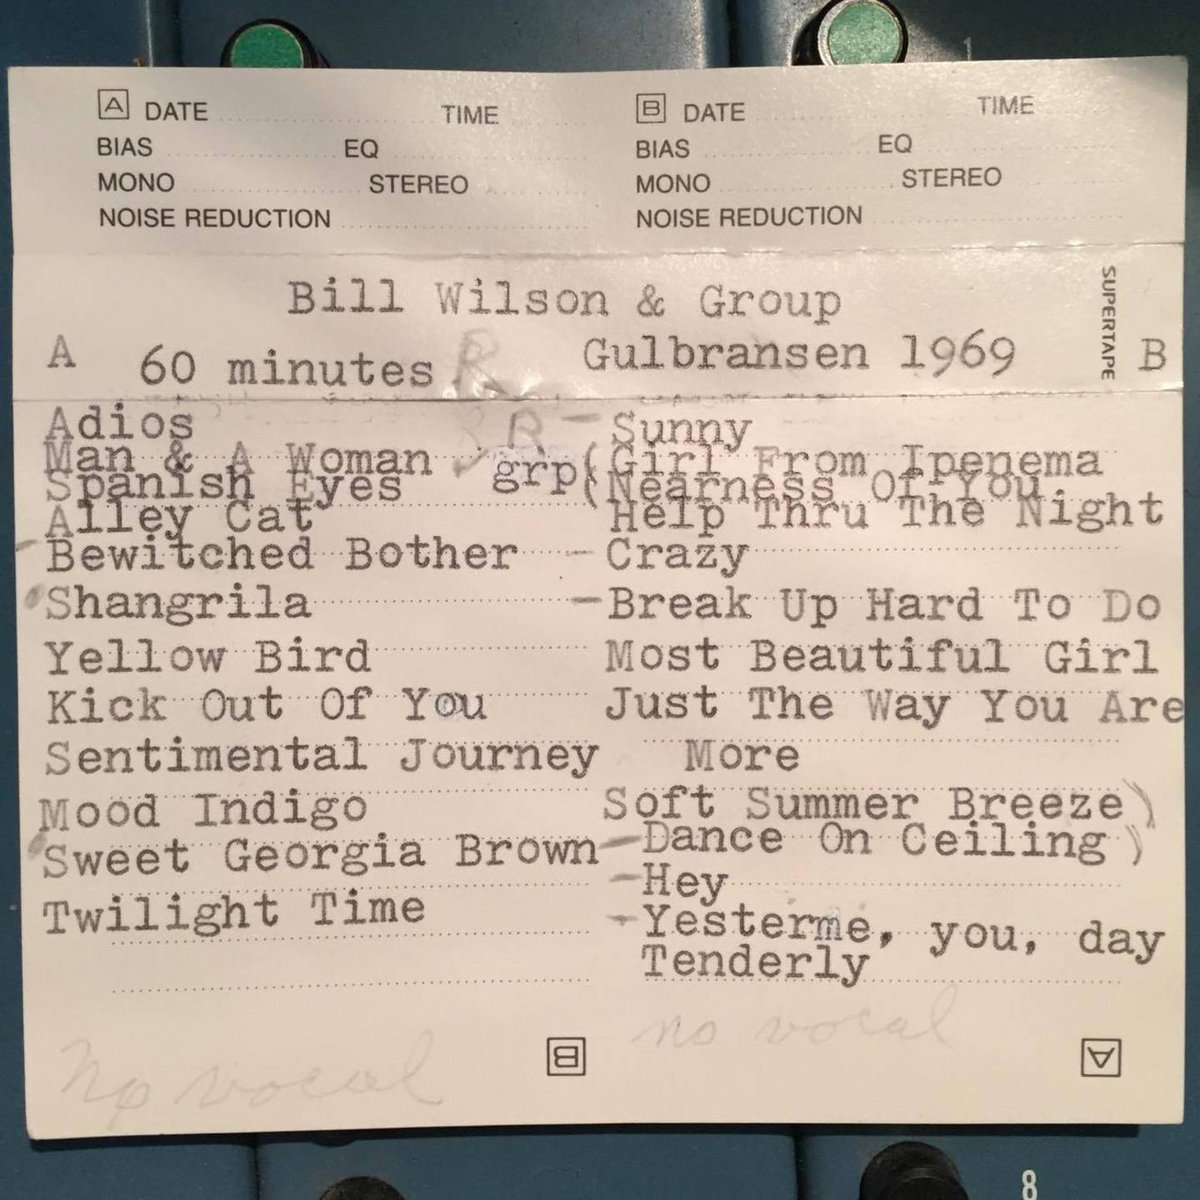 A DATE TIME
BIAS EQ
MONO STEREO
NOISE REDUCTION
B DATE TIME
BIAS EQ
MONO STEREO
NOISE REDUCTION
Bill Wilson & Group
A 60 minutes R Gulbransen 1969 B
SUPERTAPE
Adios
Man & A Woman
Spanish Eyes
Alley Cat
Bewitched Bother
Shangrila
Yellow Bird
Kick Out Of You
Sentimental Journey
Mood Indigo
Sweet Georgia Brown
Twilight Time
No vocal
B
R - Sunny
grp (Girl From Ipenema
(Nearness Of You
Help Thru The Night
- Crazy
- Break Up Hard To Do
Most Beautiful Girl
Just The Way You Are
More
Soft Summer Breeze )
- Dance On Ceiling )
- Hey
- Yesterme, you, day
Tenderly
no vocal
A
8